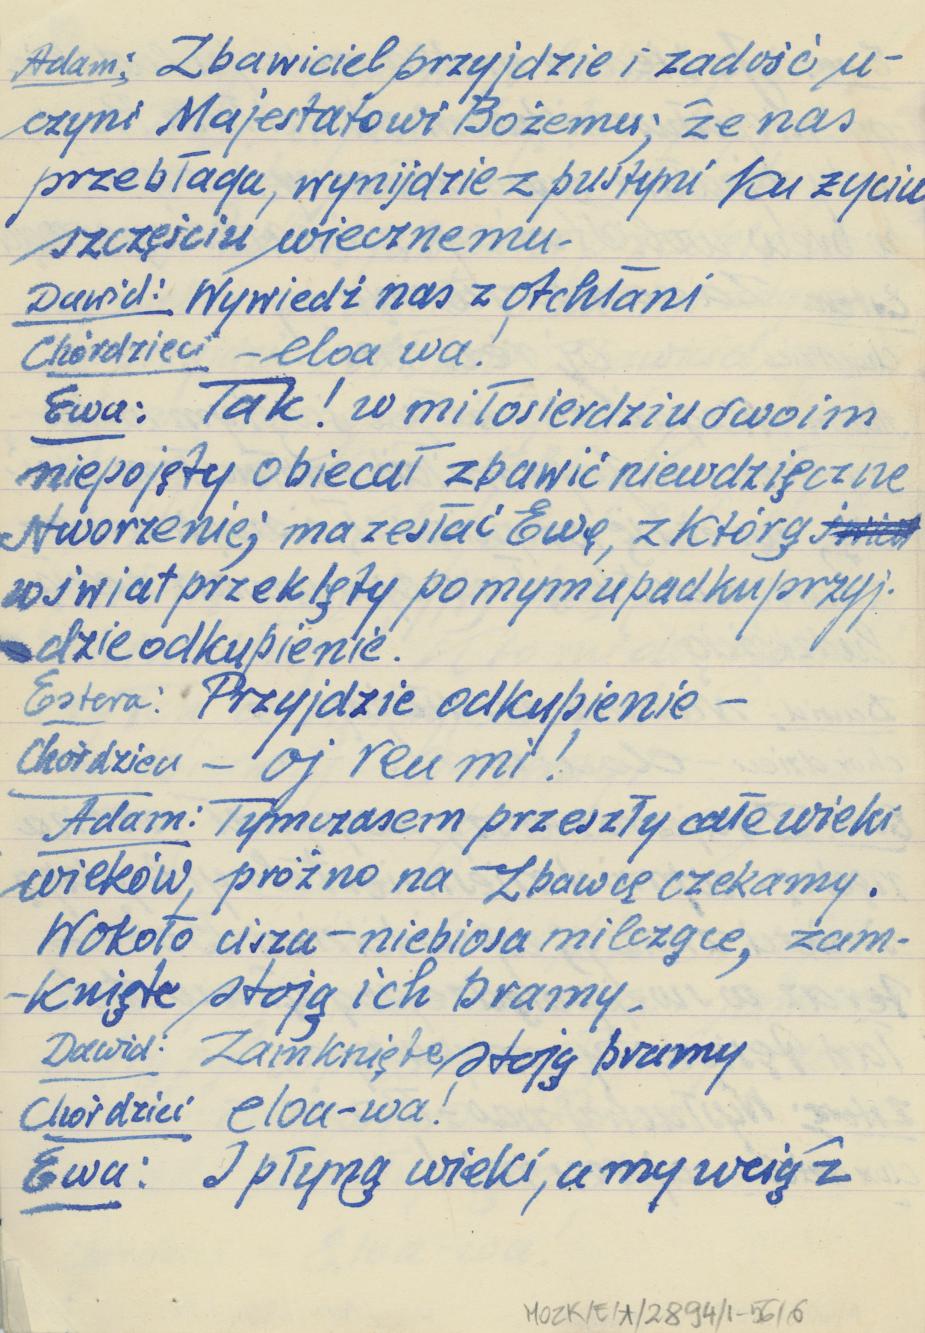 Adam: Zbawiciel przyjdzie i zadość u-
czyni Majestatowi Bożemu; że nas
przebłaga, wynijdzie z pustyni ku życiu
szczęściu wiecznemu.
Dawid: Wywiedź nas z otchłani
Chórdzieci – eloa wa!
Ewa: Tak! w miłosierdziu swoim
niepojęty obiecał zbawić niewdzięczne
stworzenie; ma zesłać Ewę, z którą
w świat przeklęty po mym upadku przyj-
dzie odkupienie.
Estera: Przyjdzie odkupienie –
Chórdzieci – oj reu mi!
Adam: Tymczasem przeszły całe wieki
wieków, próżno na Zbawcę czekamy.
Wokoło cisza – niebiosa milczące, zam-
-knięte stoją ich bramy.
Dawid: Zamknięte stoją bramy
Chórdzieci eloa-wa!
Ewa: I płyną wieki, a my wciąż
MOZK/E/A/2894/1-56/6